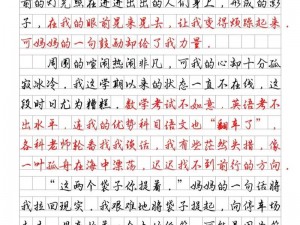 前的灯光照在进进出出的人们身上，形成的影
子，在我的眼前晃来晃去，让我变得烦躁起来，
可妈妈的一句鼓励却给了我力量。
周围的喧闹热闹非凡，可我的心却十分孤
寂冰冷，我这学期以来的状态一直不在线，这
段时日尤为糟糕。数学考试不如意，英语考不
出水平，连我的优势科目语文也“翻车了”，
各科老师轮番找我谈话，我也有些茫然失措，像
一叶孤舟在海中漂荡，迟迟找不到前行的方向。
“这两个袋子你提着，”妈妈的一句话将
我拉回现实，我艰难地将袋子提起，向停车场